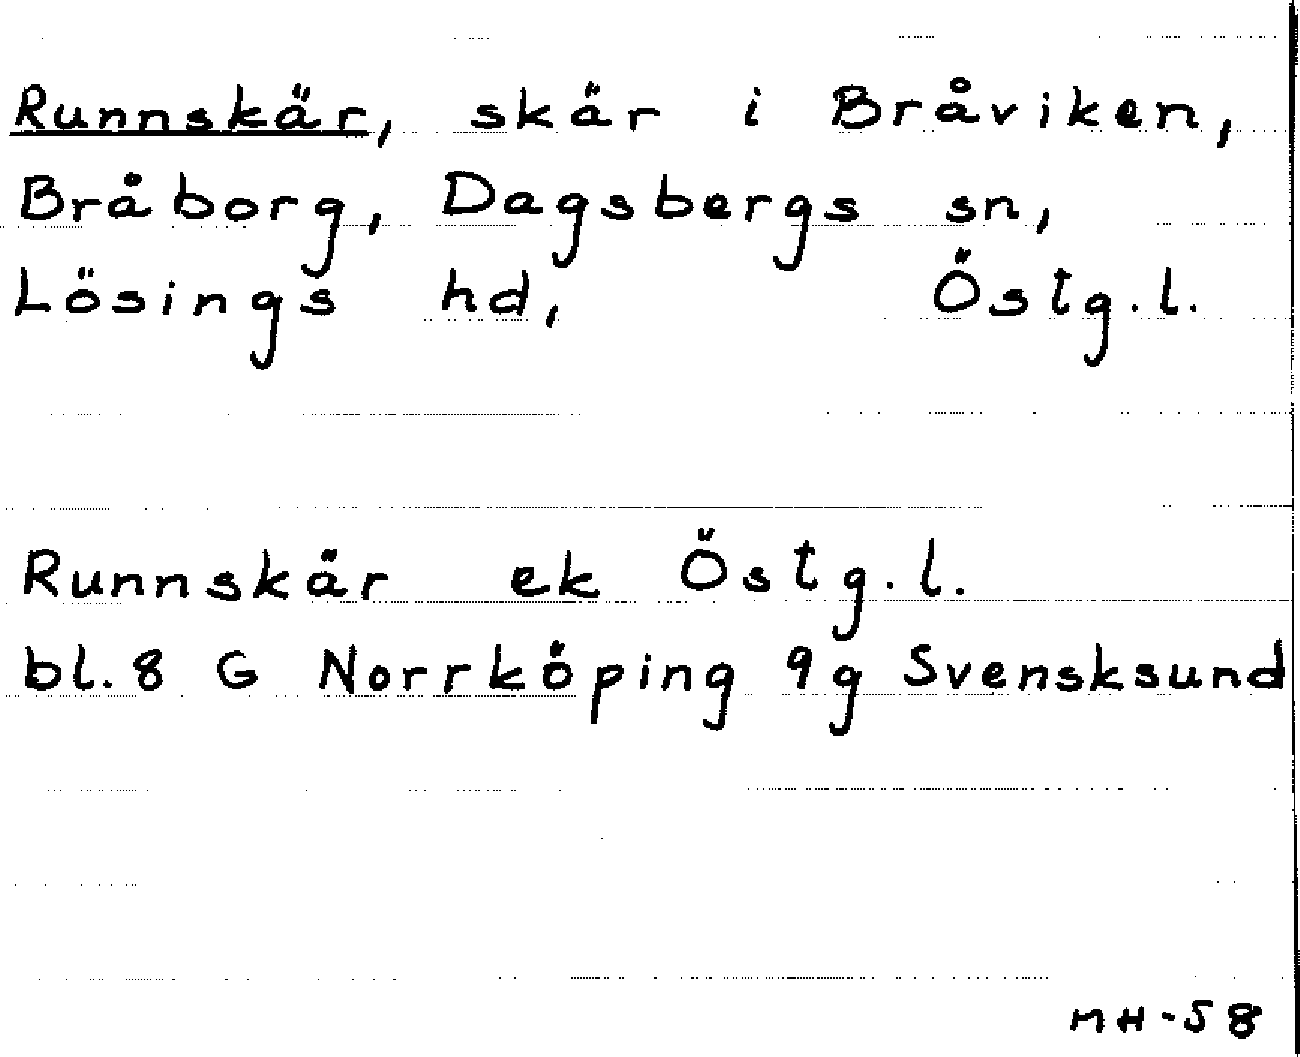 Runnskär, skär i Bråviken,
Bråborg, Dagsbergs sn,
Lösings hd, Östg.l.
Runnskär ek Östg.l.
bl. 8 G Norrköping 9g Svensksund
MH-58